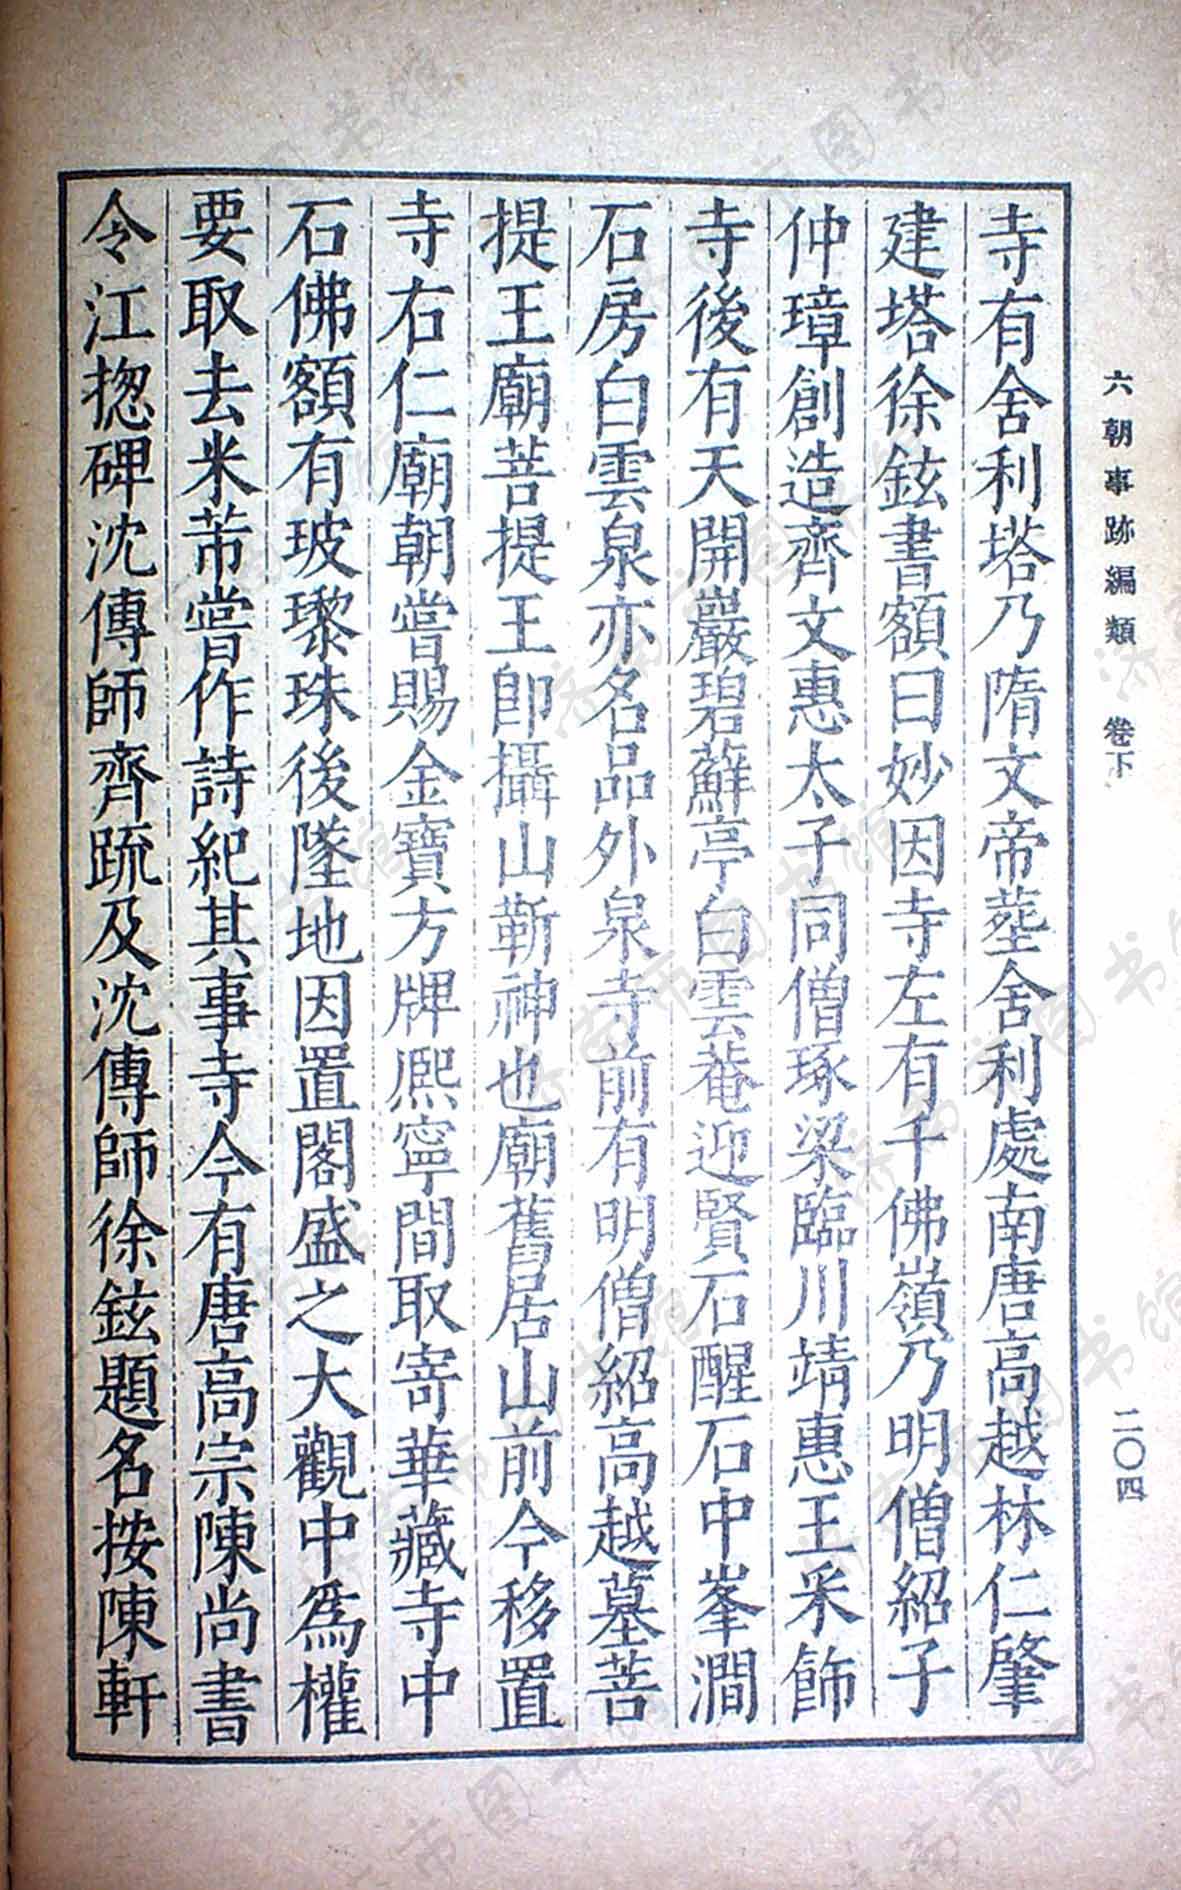 六朝事跡編類 卷下
二〇四
寺有舍利塔乃隋文帝葬舍利處南唐高越林仁肇
建塔徐鉉書額曰妙因寺左有千佛嶺乃明僧紹子
仲璋創造齊文惠太子同僧琢梁臨川靖惠王采飾
寺後有天開巖碧蘚亭白雲菴迎賢石醒石中峯澗
石房白雲泉亦名品外泉寺前有明僧紹高越墓菩
提王廟菩提王即攝山靳神也廟舊居山前今移置
寺右仁廟朝嘗賜金寶方牌熈寧間取寄華藏寺中
石佛額有玻瓈珠後墜地因置閣盛之大觀中爲權
要取去米芾嘗作詩紀其事寺今有唐高宗陳尚書
令江揔碑沈傳師齊䟽及沈傳師徐鉉題名按陳軒
济南市图书馆